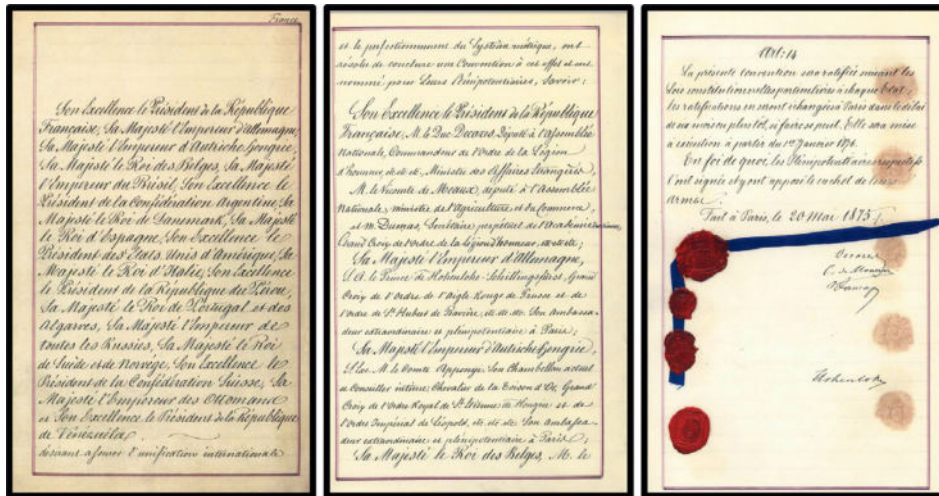 France
Son Excellence le Président de la République
Française, Sa Majesté l'Empereur d'Allemagne,
Sa Majesté l'Empereur d'Autriche-Hongrie,
Sa Majesté le Roi des Belges, Sa Majesté
l'Empereur du Brésil, Son Excellence le
Président de la Confédération Argentine, Sa
Majesté le Roi de Danemark, Sa Majesté
le Roi d'Espagne, Son Excellence le
Président des États-Unis d'Amérique, Sa
Majesté le Roi d'Italie, Son Excellence
le Président de la République du Pérou,
Sa Majesté le Roi de Portugal et des
Algarves, Sa Majesté l'Empereur de
toutes les Russies, Sa Majesté le Roi
de Suède et de Norvège, Son Excellence le
Président de la Confédération Suisse, Sa
Majesté l'Empereur des Ottomans
et Son Excellence le Président de la République
de Vénézuéla,
désirant assurer l'unification internationale
et le perfectionnement du Système métrique, ont
résolu de conclure une Convention à cet effet et ont
nommé pour Leurs Plénipotentiaires, savoir:
Son Excellence le Président de la République
Française, M. le Duc Decazes, Député à l'Assemblée
Nationale, Commandeur de l'Ordre de la Légion
d'honneur, etc. etc. Ministre des Affaires Etrangères,
M. le Vicomte de Meaux, député à l'Assemblée
Nationale, ministre de l'Agriculture et du Commerce,
et M. Dumas, Secrétaire perpétuel de l'Académie des Sciences,
Grand Croix de l'ordre de la légion d'honneur, etc. etc;
Sa Majesté l'Empereur d'Allemagne,
S. A. le Prince de Hohenlohe-Schillingsfürst, Grand
Croix de l'Ordre de l'Aigle Rouge de Prusse et de
l'Ordre de St. Hubert de Bavière, etc. etc. etc. Son Ambassa-
deur extraordinaire et plénipotentiaire à Paris;
Sa Majesté l'Empereur d'Autriche-Hongrie,
S. Exc. M. le Comte Apponyi, Son Chambellan actuel
et Conseiller intime, Chevalier de la Toison d'Or, Grand
Croix de l'Ordre Royal de St. Etienne de Hongrie et de
l'Ordre Impérial de Léopold, etc. etc. etc. Son Ambassa-
deur extraordinaire et plénipotentiaire à Paris;
Sa Majesté le Roi des Belges, M. le
Art: 14
La présente convention sera ratifiée suivant les
Lois constitutionnelles particulières à chaque Etat;
les ratifications en seront échangées à Paris dans le délai
de six mois ou plus tôt, si faire se peut. Elle sera mise
à exécution à partir du 1er Janvier 1876.
En foi de quoi, les Plénipotentiaires respectifs
l'ont signée et y ont apposé le cachet de leurs
armes.
Fait à Paris, le 20 Mai 1875.
Decazes
C. de Meaux
Dumas
Hohenlohe